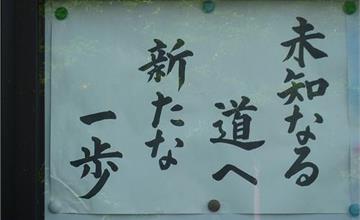 未知なる
道へ
新たな
一歩